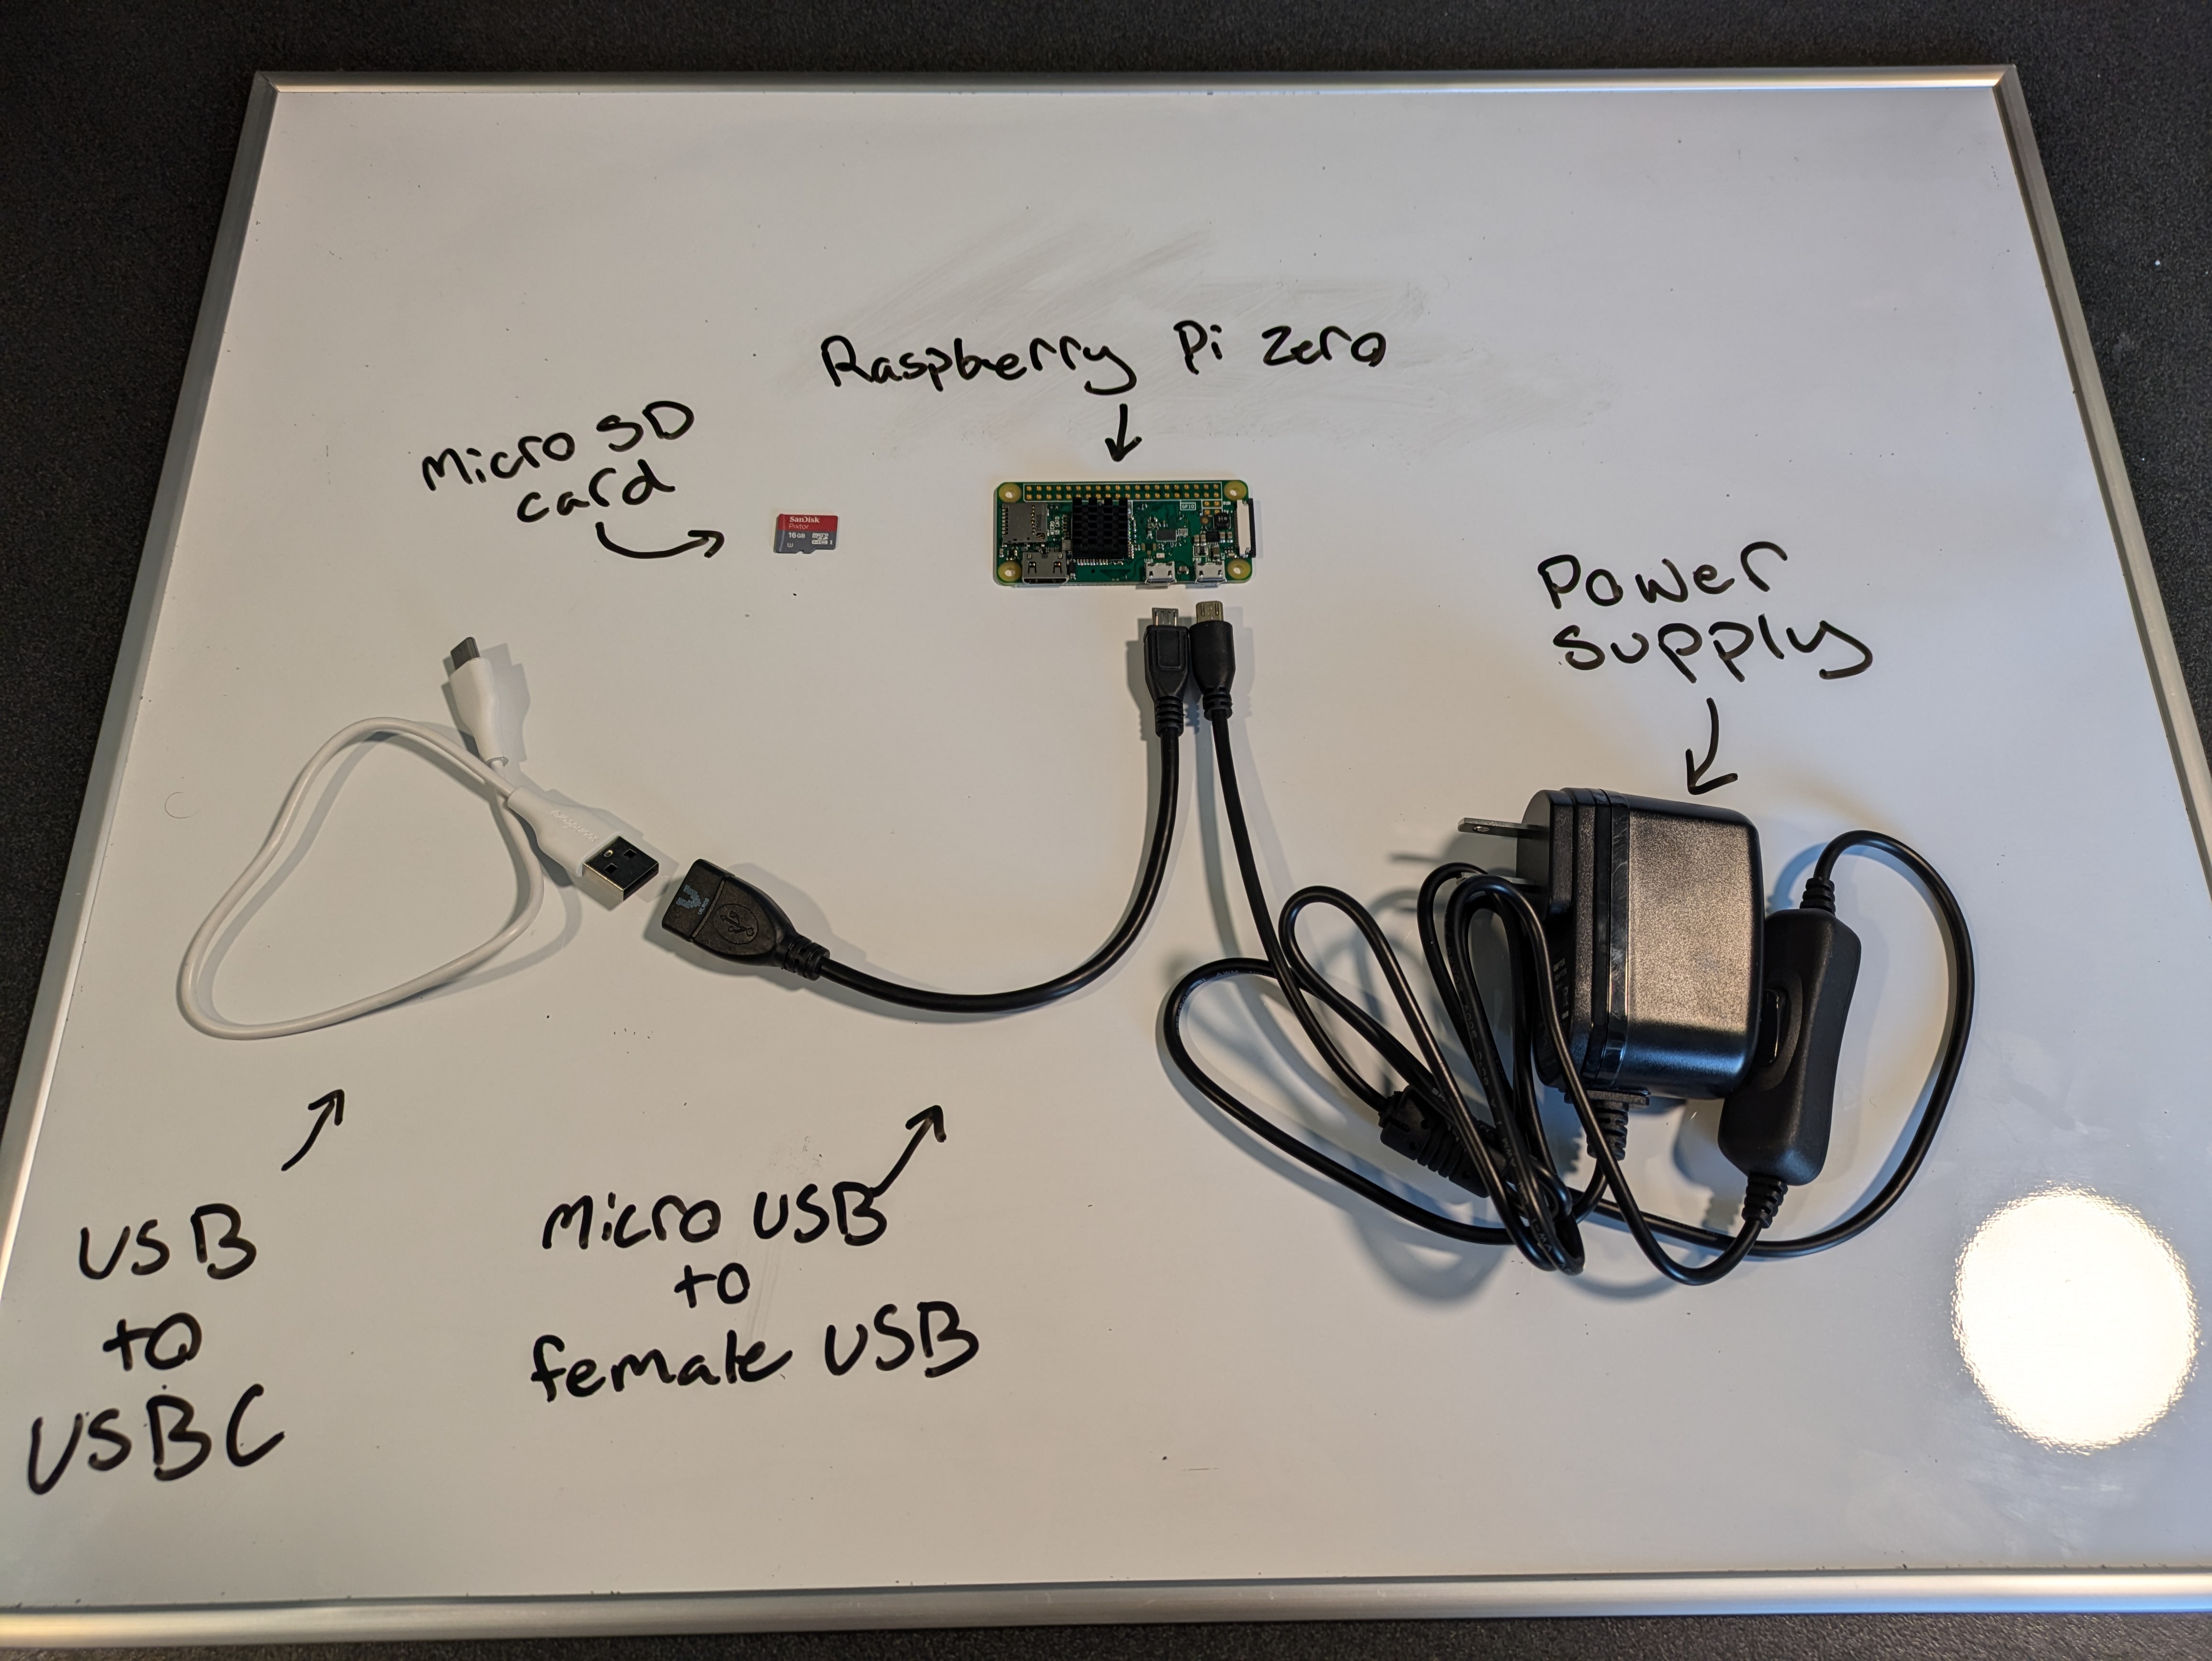 Raspberry Pi Zero
Micro SD
card
SanDisk
Pixtor
16 GB
Power
supply
USB
to
USBC
Micro USB
to
female USB